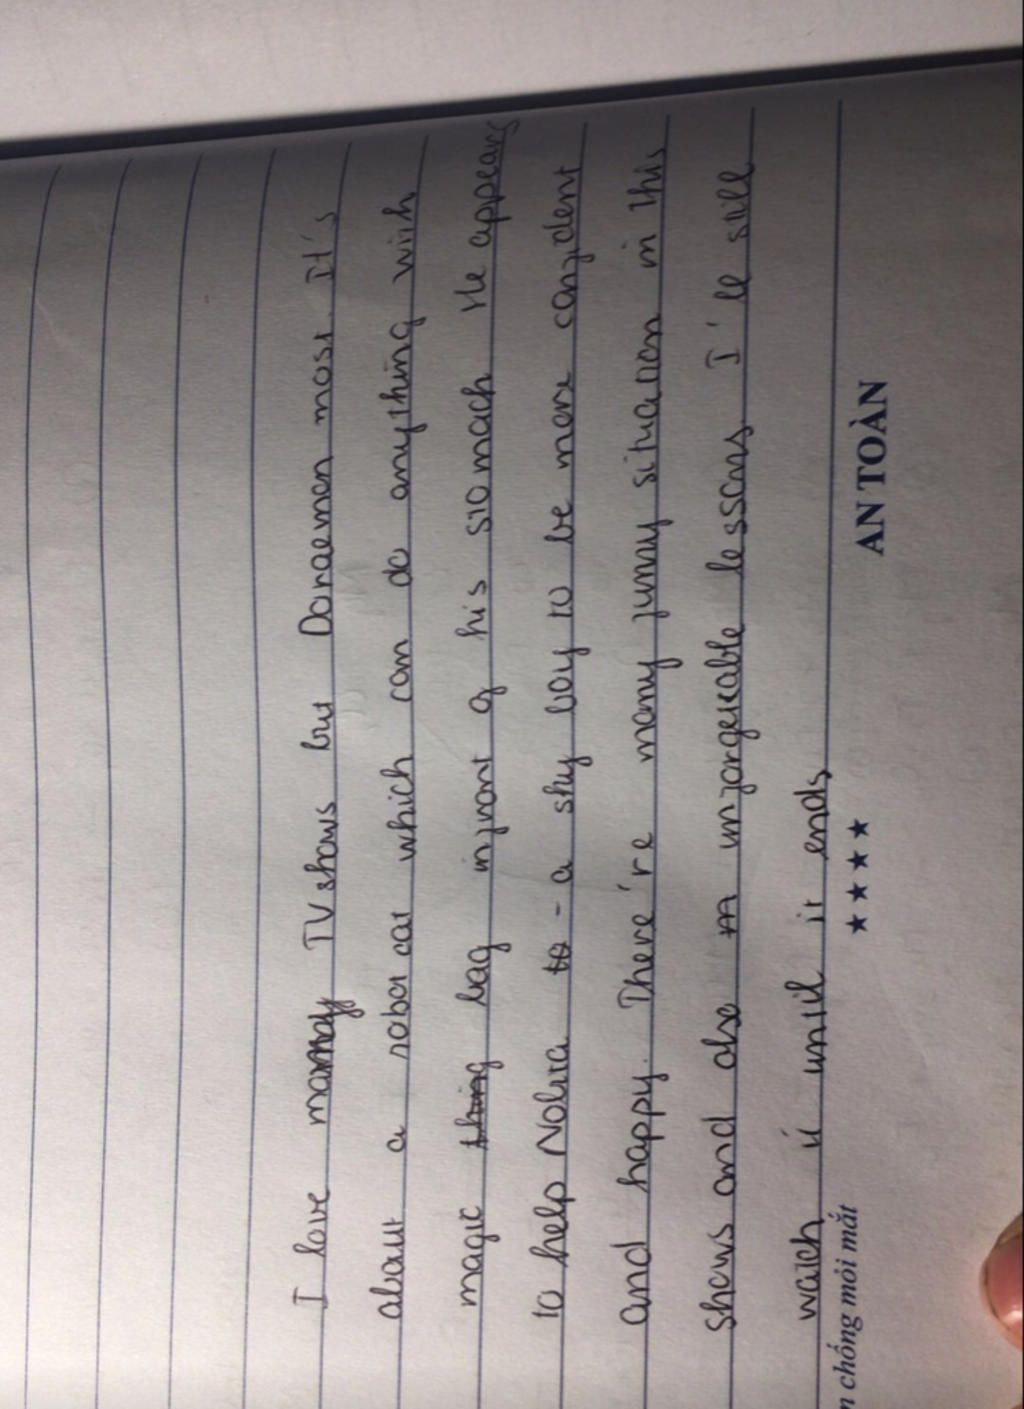 I love many TV shows but Doraemon most. It's
about a robot cat which can do anything with
magic bag infront of his stomach He appears
to help Nobita - a shy boy to be more confident
and happy. There're many funny situation in this
shows and also unforgettable lessons. I'll still
watch it until it ends.
n chống mỏi mắt ★ ★ ★ ★ AN TOÀN